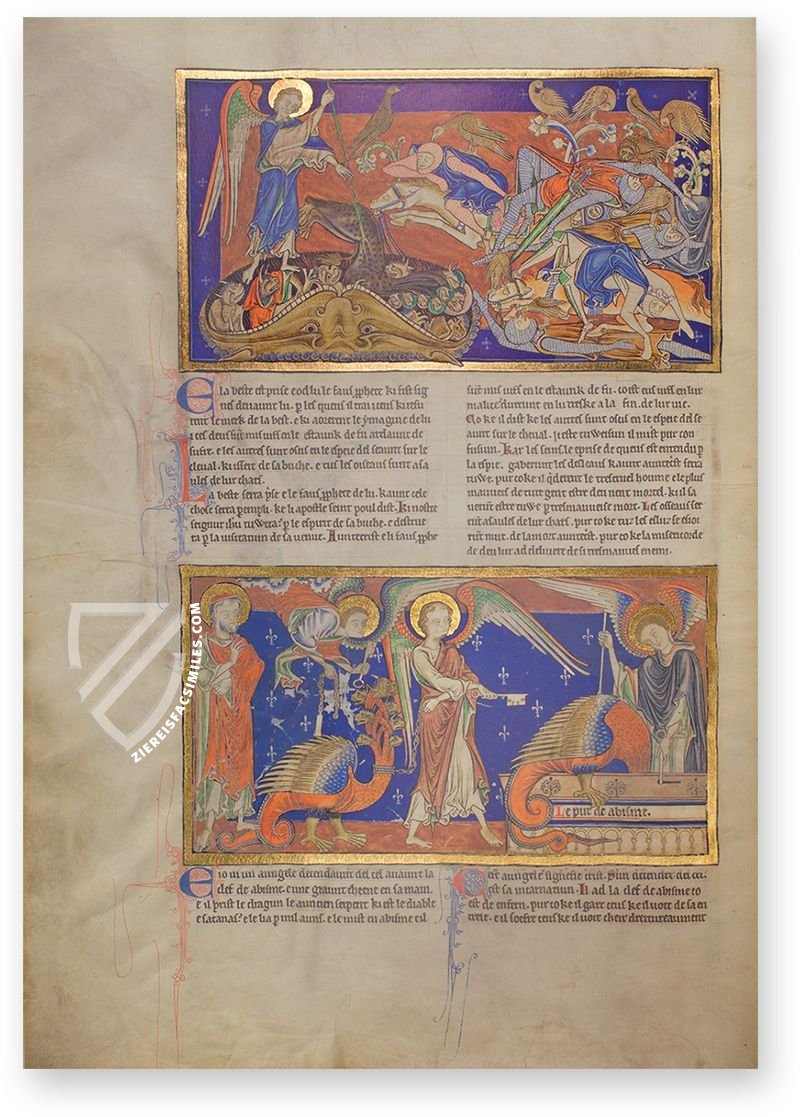 E la beste est prise e od lui le faus pphete ki fist sig
nes deuaunt lu. p les queus il
rent le merk de la best. e ki aorerent le ymagine de lu
i ces deus sunt mis uifs en le estaunk de fu ardaunt de
sufre. e les autres sunt osis en le espeie del seaunt sur le
cheual. ki ist cert de sa buche. e tus les oiseaus sunt asa
ules de lur chars.
La beste serra pse e le faus pphete de lu. kaunt cele
chose serra empli. ke li apostle seint poul dist. ki nostre
seignur ihu p le espirit de sa buche. e destrue
ra p la uisitatiun de sa uenue. Auntecrist e li faus pphe
sunt mis uifs en le estaunk de fu. co est eus uifs en lur
malice durrunt en lu treske a la fin. de lur uie.
Co ke il dist ke les autres sunt osis en le espeie del se
aunt sur le cheual. iceste tuuesun il mist pur con
fusiun. Kar les
la espie. les desleaus kaunt auntecrist serra
tuwe. pur co ke il le tresCruel houme e le plus
mauueis de tute gent estre deuuent mortel. ki il sa
uerunt estre tuwe p tresmauueise mort. Les oiseaus ser
runt asaules de lur chars. pur co ke tuz les esluz se esioi
runt mut. de la mort auntecrist. pur co ke sa misericorde
de deu lur ad deliuere de si tresmauueis enemi.
Le put de abisme.
E io ui un aungele decendaunt del cel auaunt la
clef de abisme. e une graunt cheene en sa main.
e il prist le dragun le auncien serpent ki est le diable
e satanas. e le lia p mil auns. e le mist en abisme e il
Cest aungele signefie crist. Sun decendre del cel.
est sa incarnatiun. Il ad la clef de abisme co
est de enfern. pur co ke il gart ceus ke il uoit de sa en
treie. e il soefre ceus ke il uoit cheir dreitureaument
ZIEREISFACSIMILES.COM